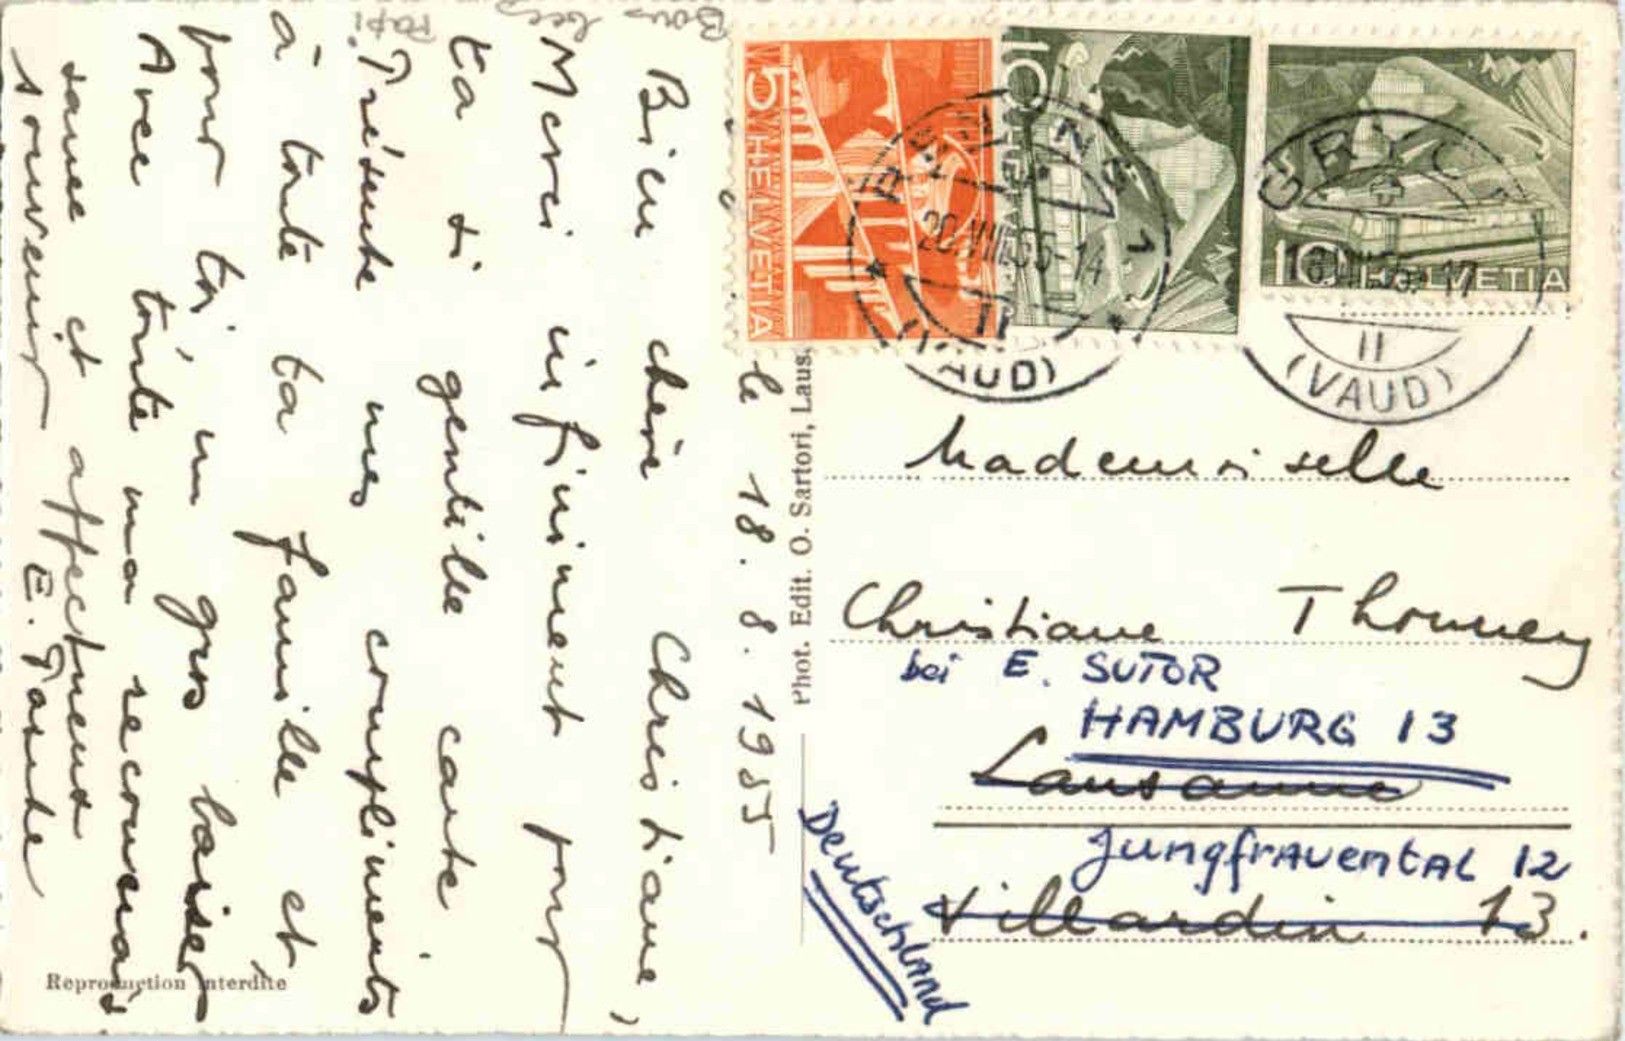 le 18. 8. 1955
Bien chère Christiane,
Merci infiniment pour
ta si gentille carte.
Présente mes compliments
à toute ta famille et
pour toi, un gros baiser
Avec toute ma reconnais
sance et affectueux
souvenir E. Tante
Bons
Papi
Reproduction interdite
Phot. Edit. O. Sartori, Laus.
5 HELVETIA
10 HELVETIA
10 HELVETIA
20.VIII.55-14
II
(VAUD)
GRYON
17
II
(VAUD)
Mademoiselle
Christiane Thonney
bei E. SUTOR
HAMBURG 13
Lausanne
Jungfrauental 12
Villardin 13.
Deutschland